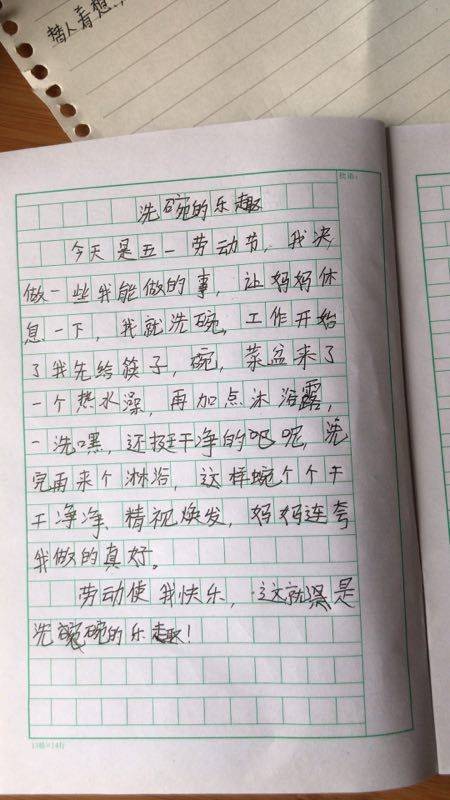 替人着想
批语:
洗碗的乐趣
今天是五一劳动节，我决
做一些我能做的事，让妈妈休
息一下，我就洗碗，工作开始
了我先给筷子，碗，菜盆来了
一个热水澡，再加点沐浴露，
一洗嘿，还挺干净的吧呢，洗
完再来个淋浴，这样碗个个干
干净净，精视焕发，妈妈连夸
我做的真好。
劳动使我快乐，这就是
洗碗的乐趣！
13格×14行